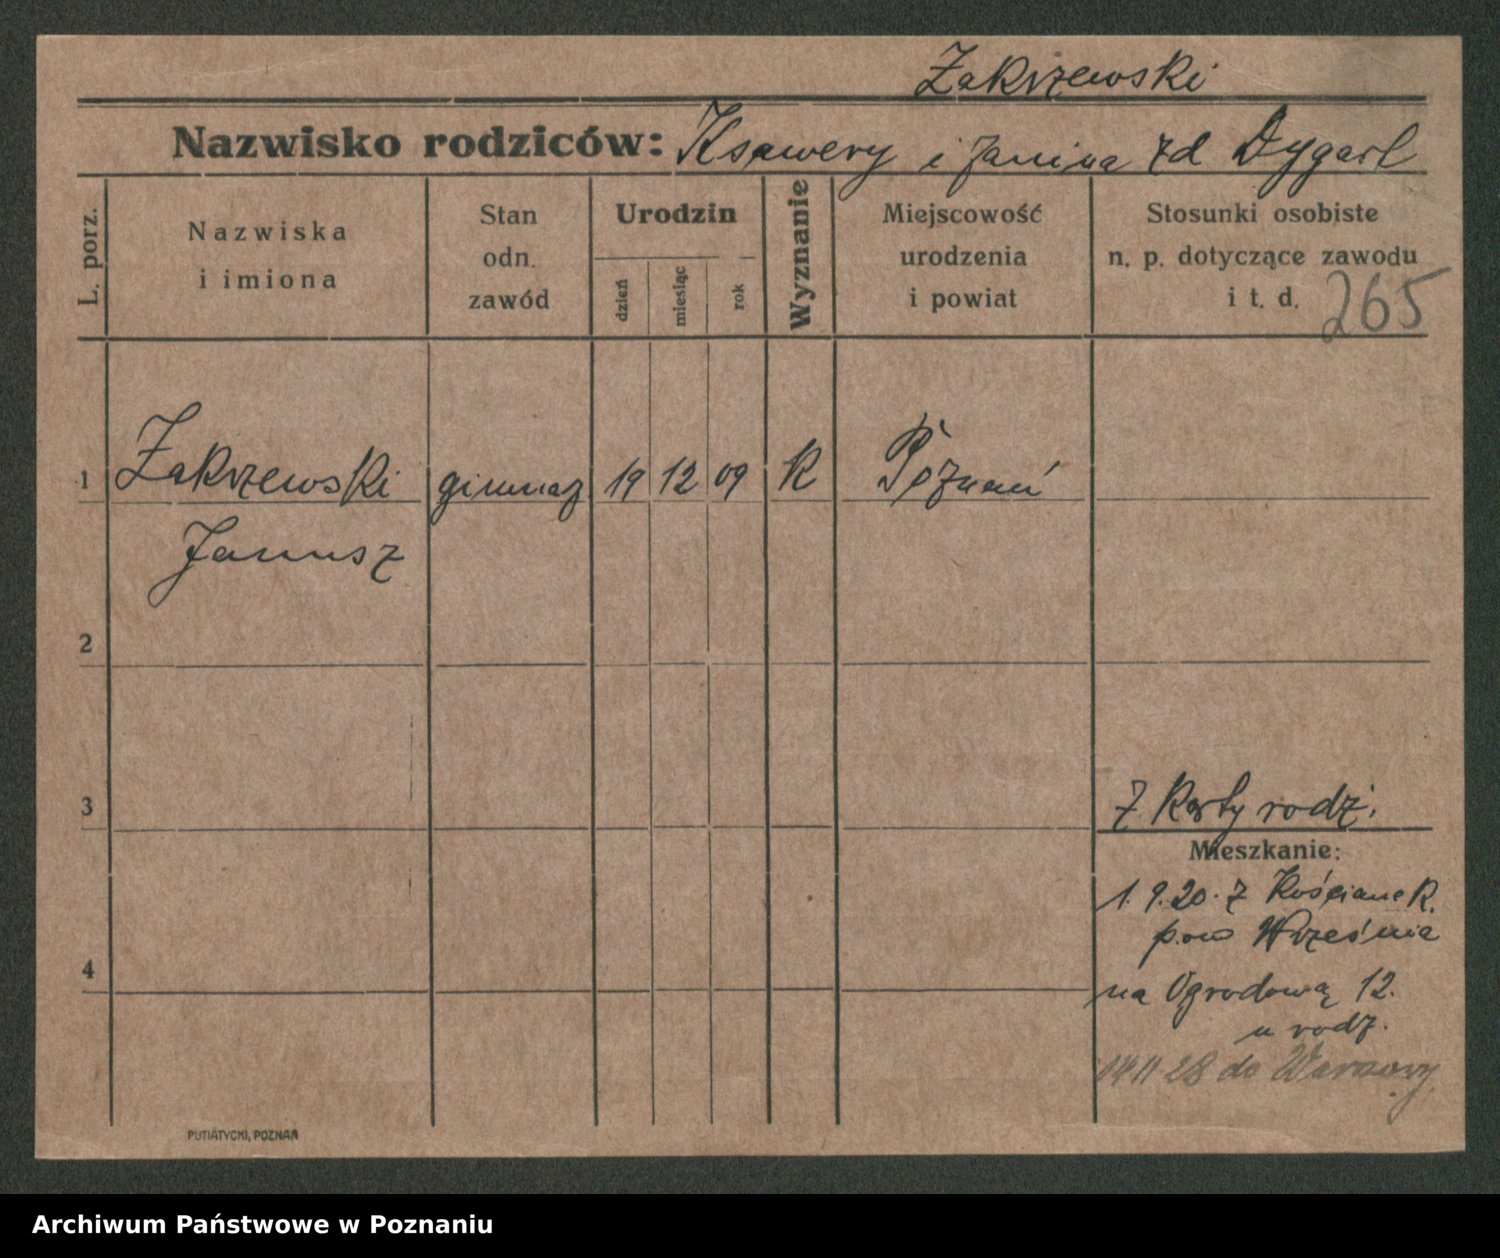 Zakrzewski
Nazwisko rodziców: Ksawery i Janina zd Dygart
L. porz.
Nazwiska
i imiona
Stan
odn.
zawód
Urodzin
dzień
miesiąc
rok
Wyznanie
Miejscowość
urodzenia
i powiat
Stosunki osobiste
n. p. dotyczące zawodu
i t. d. 265
1 Zakrzewski gimnaz 19 12 09 R Poznań
Janusz
2
3
Z Karty rodz.
Mieszkanie:
1.9.20. z Kościanek.
pow Września
4
na Ogrodową 12.
u rodz.
14 11 28 do Warszawy
PUTIATYCKI, POZNAŃ
Archiwum Państwowe w Poznaniu